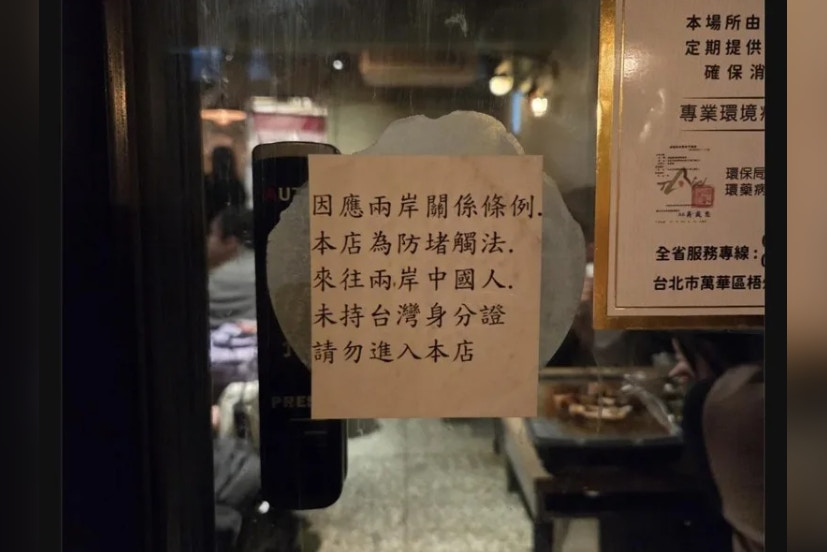 因應兩岸關係條例.
本店為防堵觸法.
來往兩岸中國人.
未持台灣身分證
請勿進入本店
本場所由
定期提供
確保消
專業環境
環保局
環藥病
全省服務專線：
台北市萬華區梧